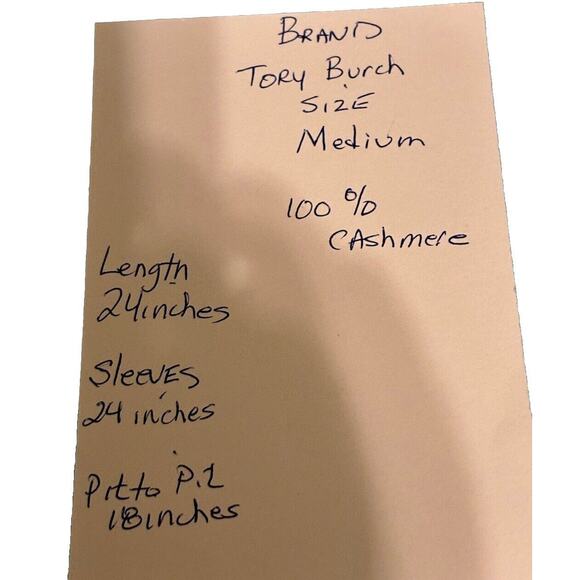 BRAND
TORY Burch
SIZE
Medium
100 %
CAshmere
Length
24inches
SleeVES
24 inches
Pit to Pit
18inches